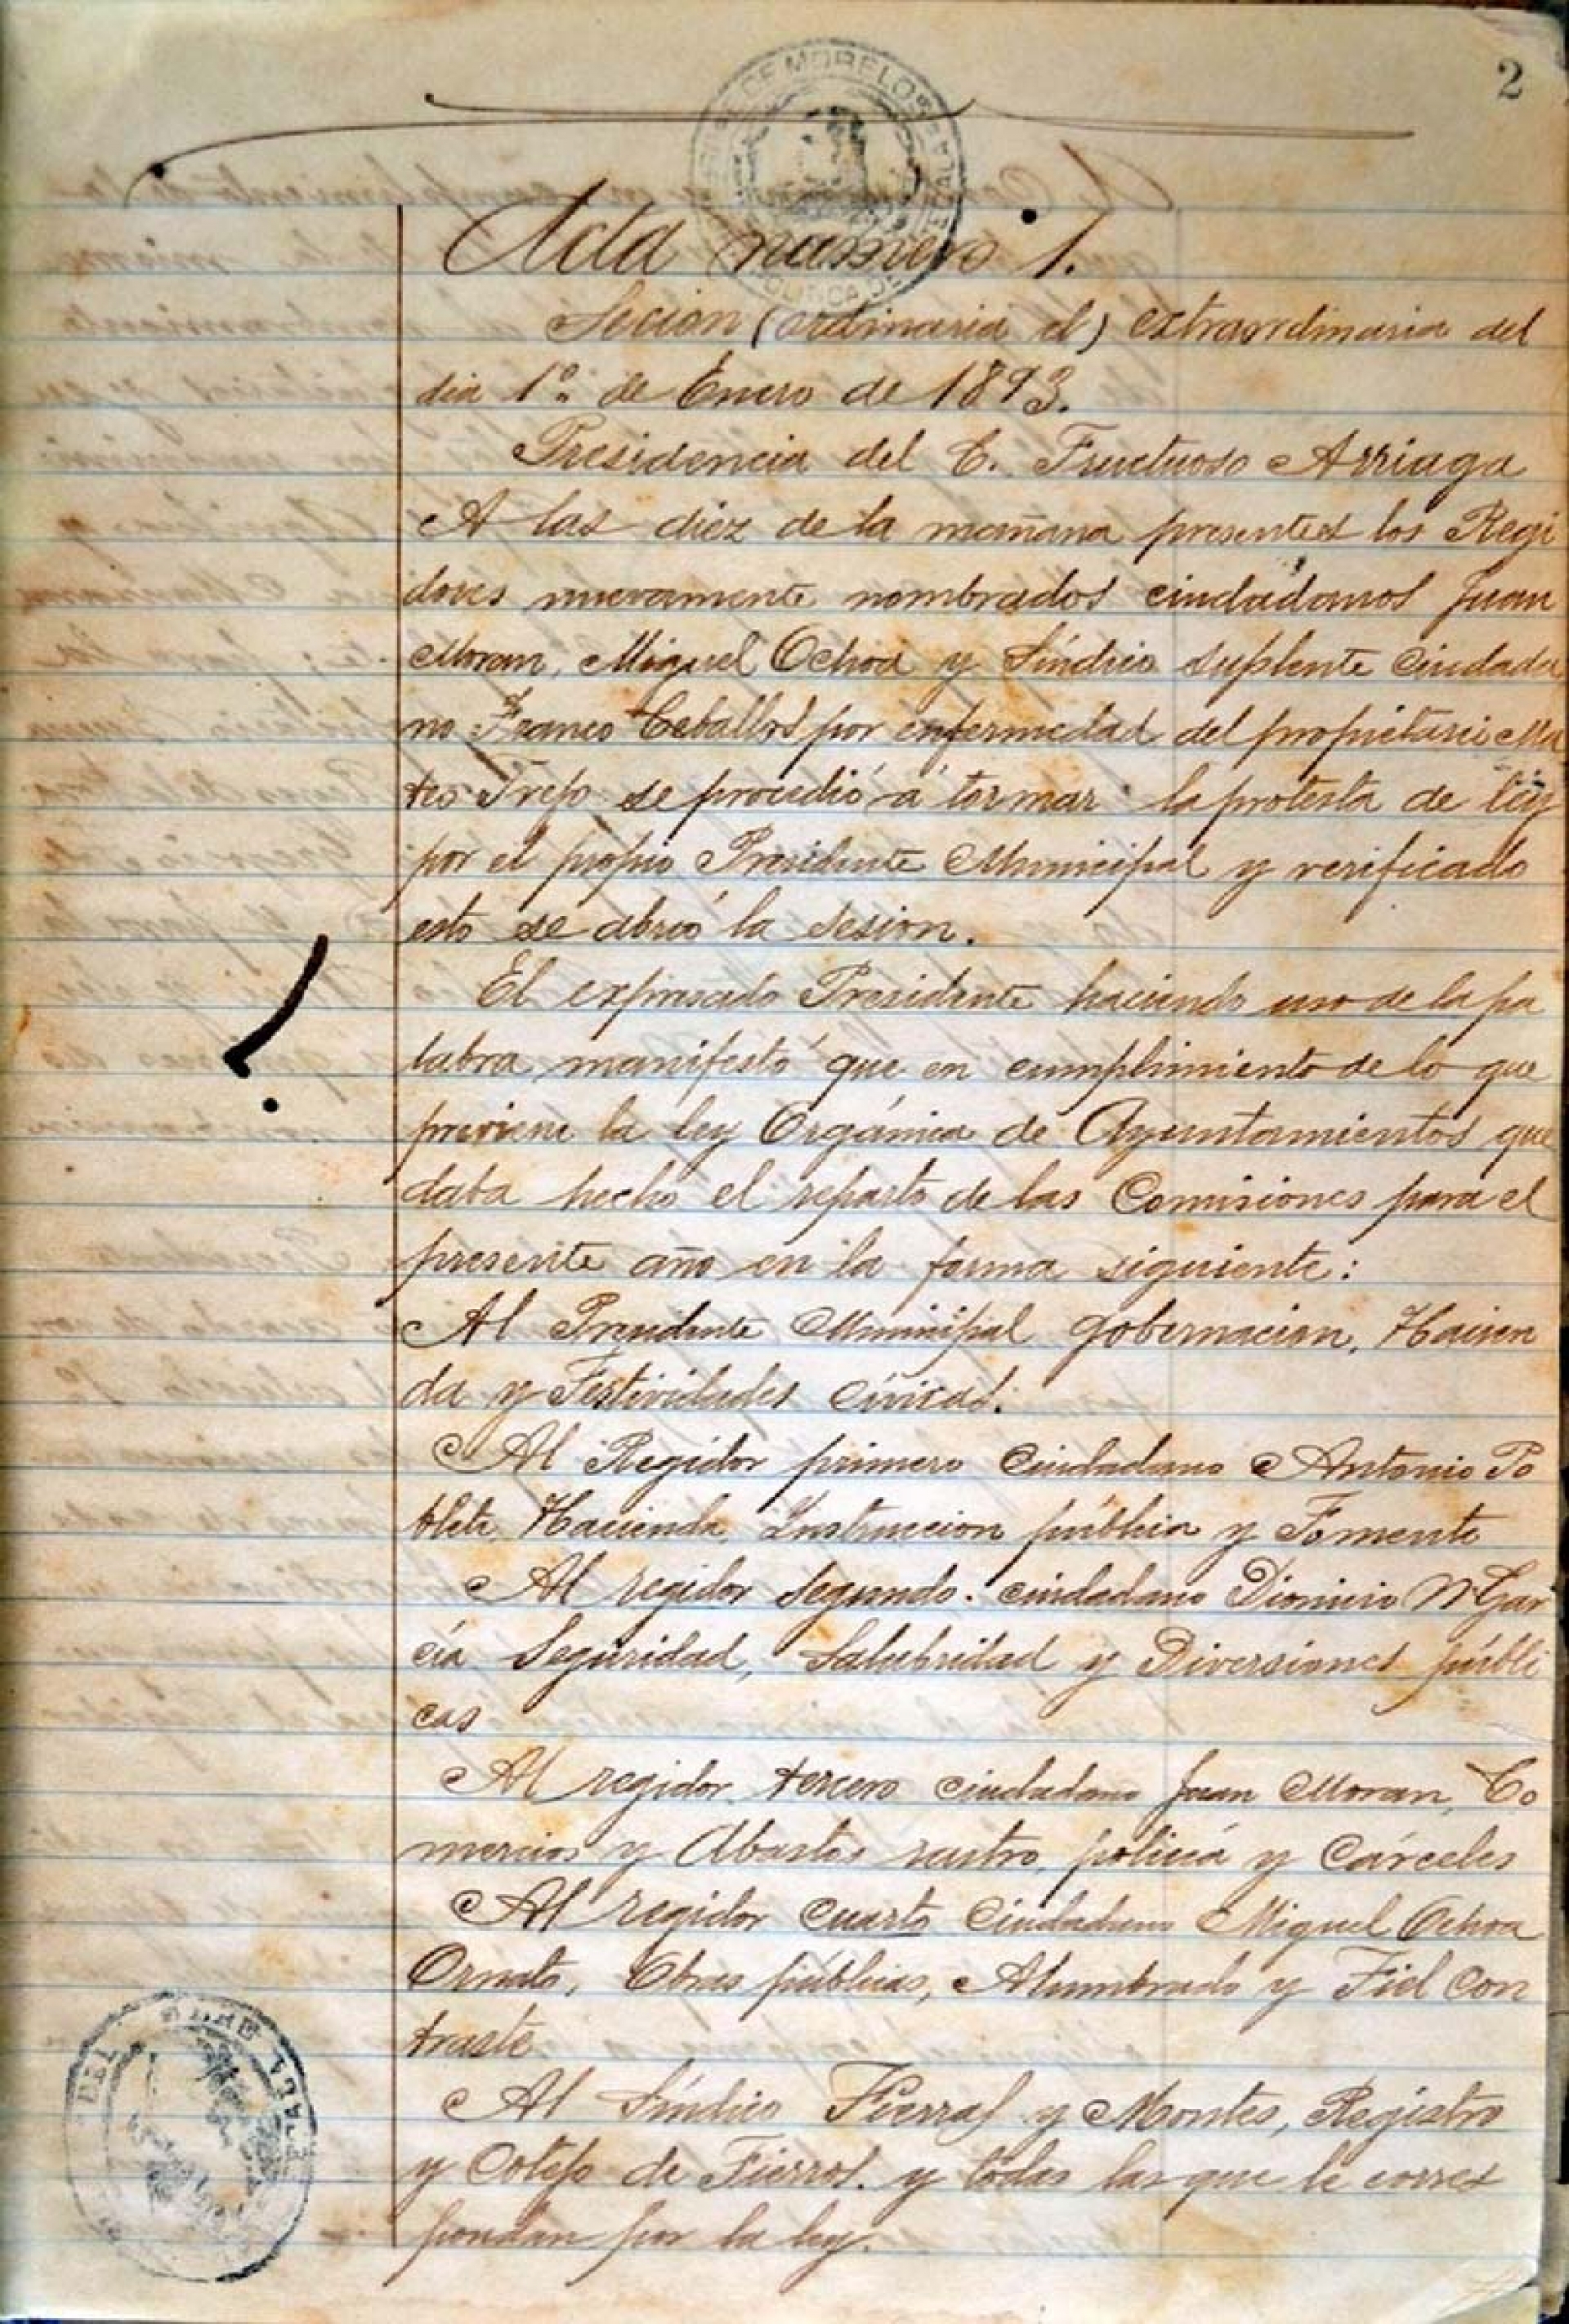 2
DE MORELOS
Acta número 1.
Secion (ordinaria el) extraordinaria del
dia 1º de Enero de 1893.
Presidencia del C. Fructuoso Arriaga
A las diez de la mañana presentes los Regi
dores nuevamente nombrados ciudadanos Juan
Moran, Miguel Ochoa y Síndico suplente Ciudada
no Franco Ceballos por enfermedad del propietario Ma
teo Trejo se procedió á tormar la protesta de ley
por el propio Presidente Municipal y verificado
esto se abrió la sesion.
El expresado Presidente haciendo uso de la pa
labra manifestó que en cumplimiento de lo que
previene la ley Orgánica de Ayuntamientos que
daba hecho el reparto de las Comisiones para el
presente año en la forma siguiente:
Al Presidente Municipal gobernacion, Hacien
da y Festividades Cívicas.
Al Regidor primero Ciudadano Antonio Po
blete Hacienda, Instruccion pública y Fomento
Al regidor segundo. ciudadano Dionicio M. Gar
cía Seguridad, Salubridad y Diversiones públi
cas
Al regidor tercero ciudadano Juan Moran, Co
mercios y Abastos rastro, policía y Cárceles
Al regidor Cuarto Ciudadano Miguel Ochoa
Ornato, Obras públicas, Alumbrado y Fiel Con
traste
Al Síndico Fierras y Montes, Registro
y Cotejo de Fierros. y todas las que le corres
pondan por la ley.